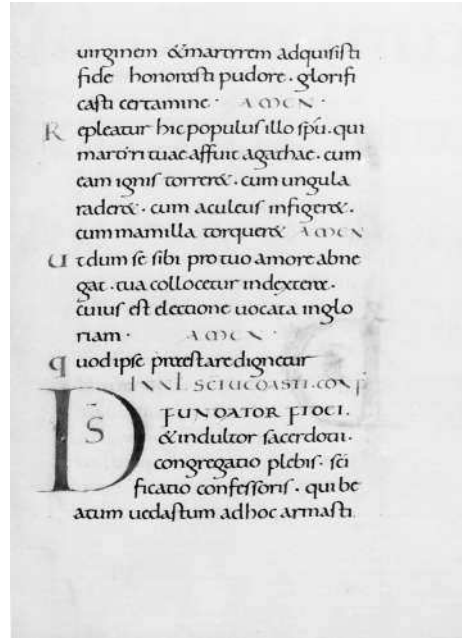 uirginem &martyrem adquisisti
fide honorasti pudore. glorifi
casti certamine. AMEN.
Repleatur hic populus illo spu. qui
martiri tuae affuit agathae. cum
eam ignis torrer&. cum ungula
rader&. cum aculeus infiger&.
cum mamilla torquer& AMEN
Ut dum se sibi pro tuo amore abne
gat. tua collocetur indexter&.
cuius est electione uocata inglo
riam. AMEN.
quod ipse praestare dignetur
UEDASTI. CONF
DS FUNDATOR FIDEI.
&indultor sacerdotii.
congregatio plebis. sci
ficatio confessoris. qui be
atum uedastum adhoc armasti